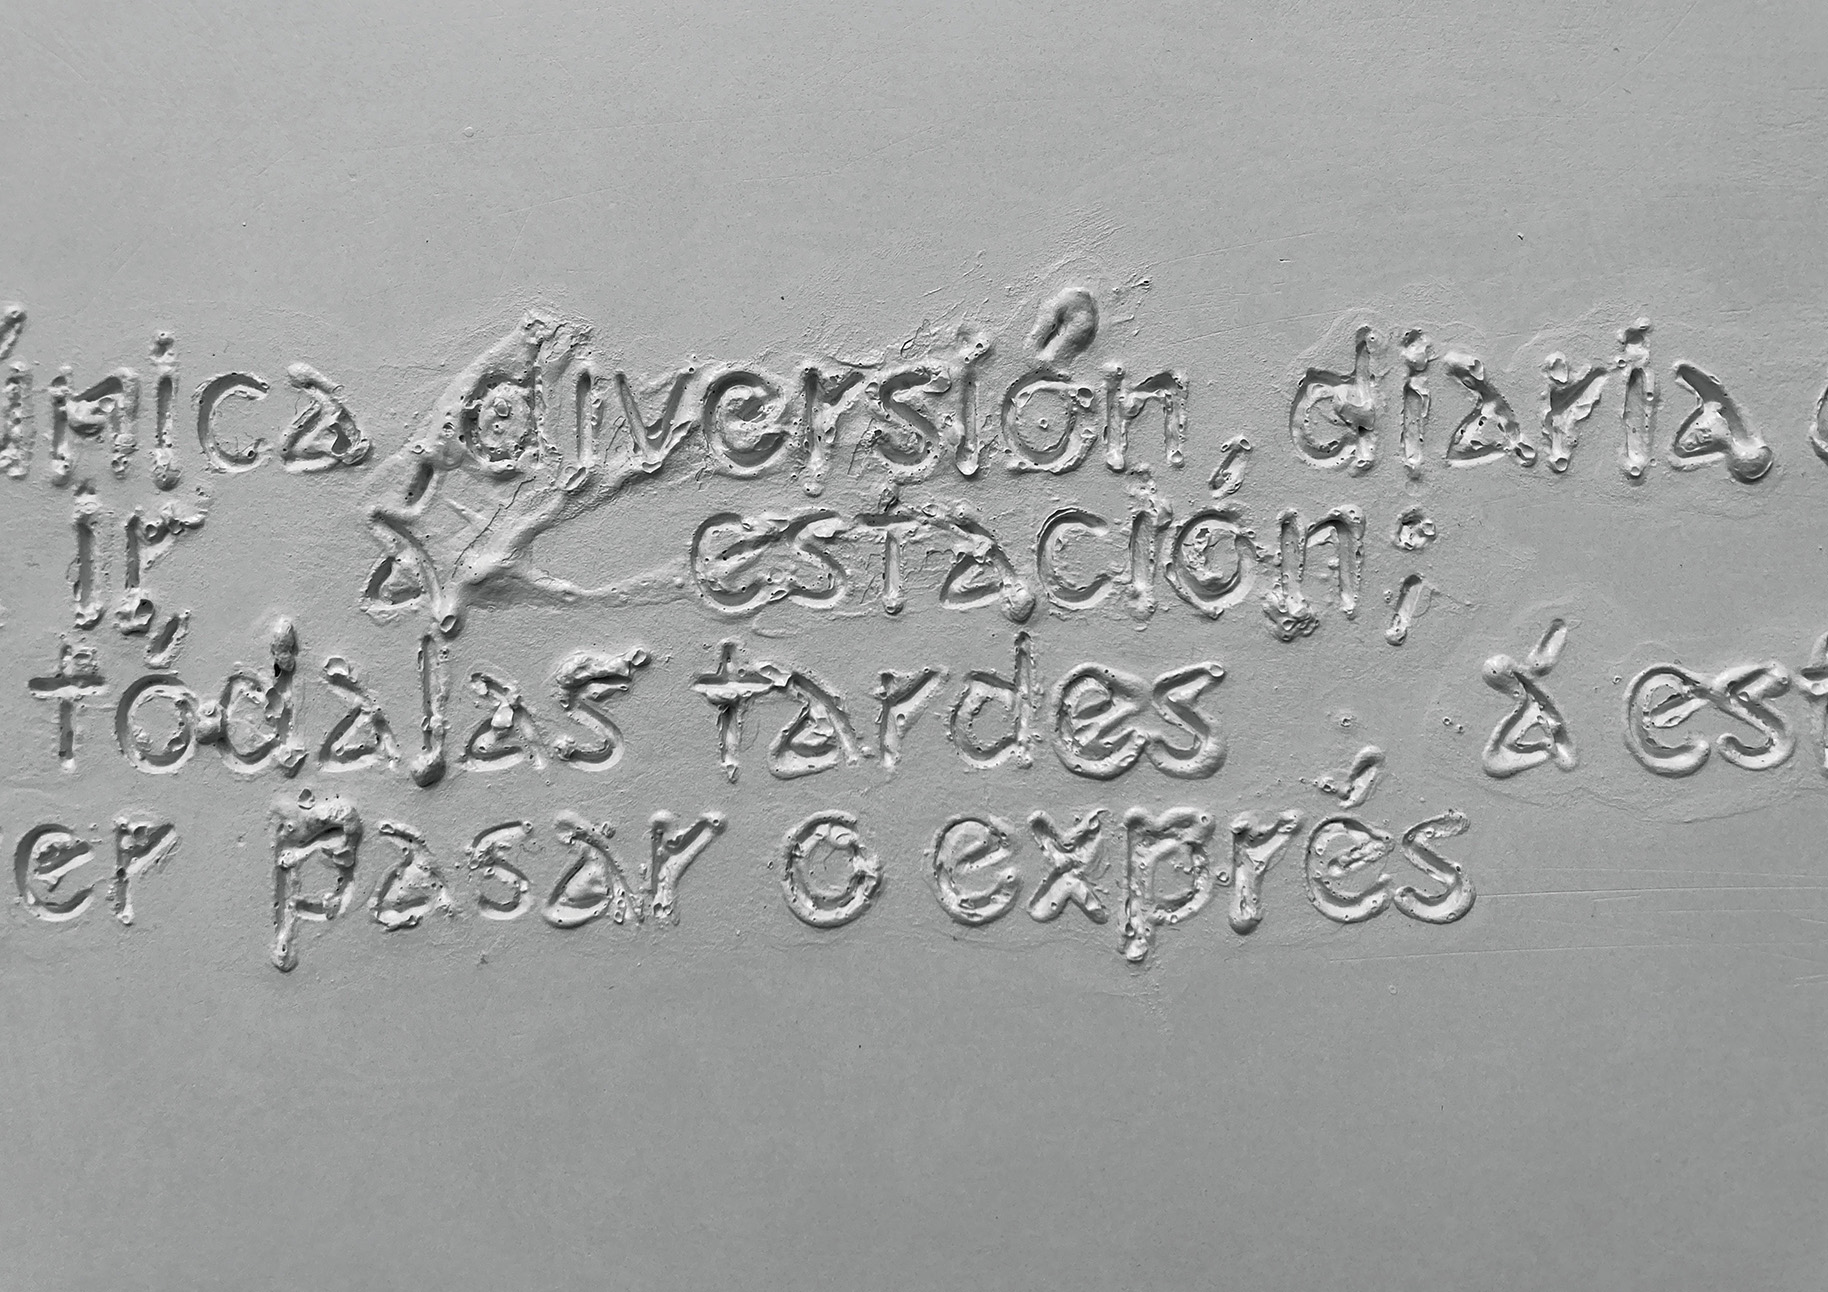 única diversión, diaria
ir, a estación;
todalas tardes á est
er pasar o exprés